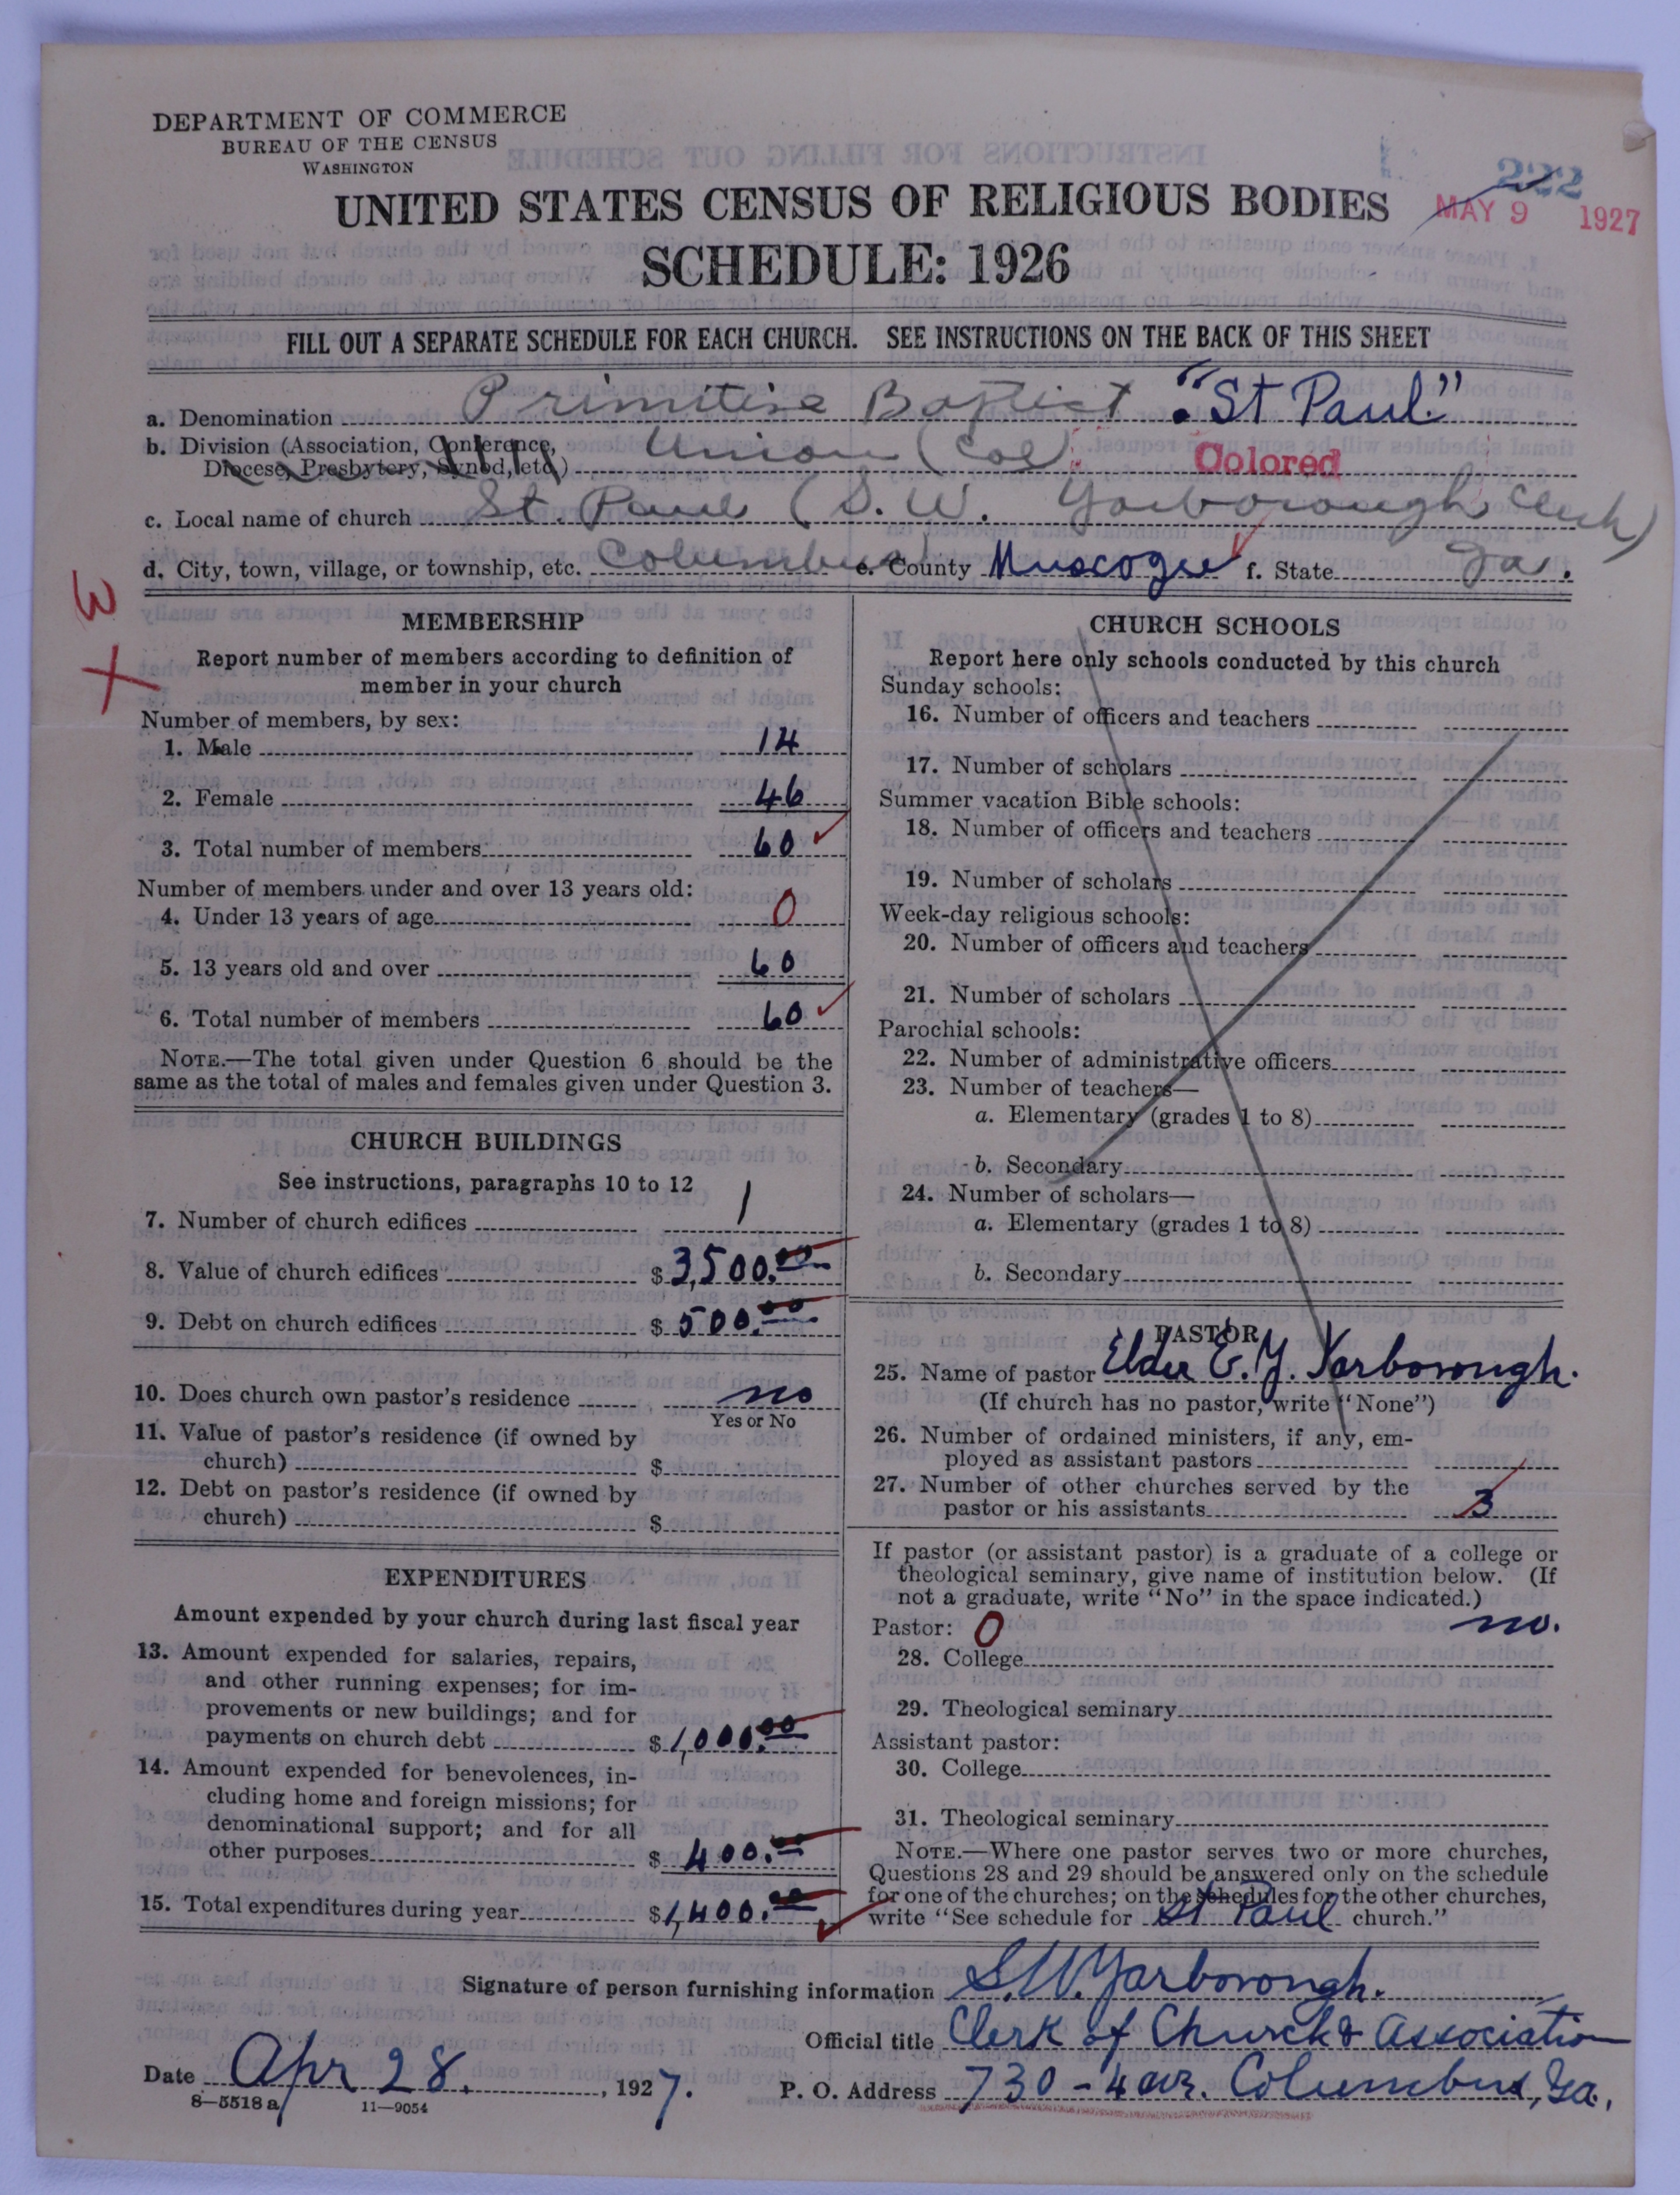 DEPARTMENT OF COMMERCE
BUREAU OF THE CENSUS
WASHINGTON
222
MAY 9 1927
UNITED STATES CENSUS OF RELIGIOUS BODIES
SCHEDULE: 1926
FILL OUT A SEPARATE SCHEDULE FOR EACH CHURCH. SEE INSTRUCTIONS ON THE BACK OF THIS SHEET
a. Denomination Primitive Baptist "St Paul."
b. Division (Association, Conference,
Diocese, Presbytery, Synod, etc.) Union (Col) Colored
c. Local name of church St. Paul (S. W. Yarborough Clerk)
d. City, town, village, or township, etc. Columbus e. County Muscogee f. State Ga.
3
X
MEMBERSHIP
Report number of members according to definition of
member in your church
Number of members, by sex:
1. Male 14
2. Female 46
3. Total number of members 60
Number of members under and over 13 years old:
4. Under 13 years of age 0
5. 13 years old and over 60
6. Total number of members 60
NOTE.—The total given under Question 6 should be the
same as the total of males and females given under Question 3.
CHURCH BUILDINGS
See instructions, paragraphs 10 to 12
7. Number of church edifices 1
8. Value of church edifices $3,500.00
9. Debt on church edifices $500.00
10. Does church own pastor's residence no
Yes or No
11. Value of pastor's residence (if owned by
church) $
12. Debt on pastor's residence (if owned by
church) $
EXPENDITURES
Amount expended by your church during last fiscal year
13. Amount expended for salaries, repairs,
and other running expenses; for im-
provements or new buildings; and for
payments on church debt $1,000.00
14. Amount expended for benevolences, in-
cluding home and foreign missions; for
denominational support; and for all
other purposes $400.00
15. Total expenditures during year $1,400.00
CHURCH SCHOOLS
Report here only schools conducted by this church
Sunday schools:
16. Number of officers and teachers
17. Number of scholars
Summer vacation Bible schools:
18. Number of officers and teachers
19. Number of scholars
Week-day religious schools:
20. Number of officers and teachers
21. Number of scholars
Parochial schools:
22. Number of administrative officers
23. Number of teachers—
a. Elementary (grades 1 to 8)
b. Secondary
24. Number of scholars—
a. Elementary (grades 1 to 8)
b. Secondary
PASTOR
25. Name of pastor Elder E. Y. Yarborough.
(If church has no pastor, write "None")
26. Number of ordained ministers, if any, em-
ployed as assistant pastors
27. Number of other churches served by the
pastor or his assistants 3
If pastor (or assistant pastor) is a graduate of a college or
theological seminary, give name of institution below. (If
not a graduate, write "No" in the space indicated.)
Pastor: 0 no.
28. College
29. Theological seminary
Assistant pastor:
30. College
31. Theological seminary
NOTE.—Where one pastor serves two or more churches,
Questions 28 and 29 should be answered only on the schedule
for one of the churches; on the schedules for the other churches,
write "See schedule for St Paul church."
Signature of person furnishing information S. W. Yarborough.
Official title Clerk of Church & Association
Date Apr 28. , 1927. P. O. Address 730 - 4 ave. Columbus, Ga.
8—5518 a 11—9054